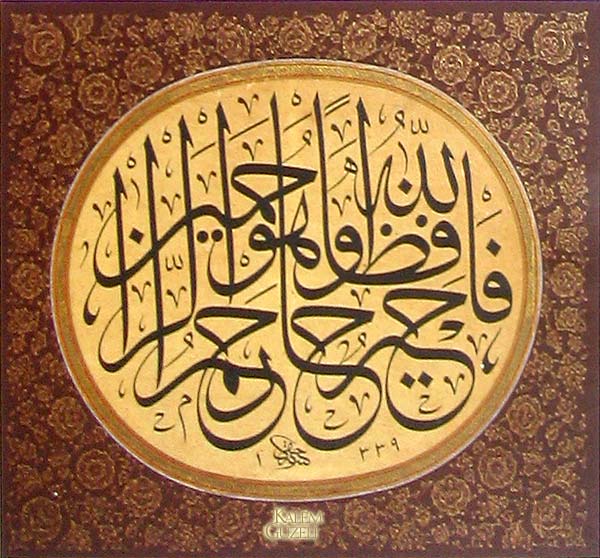 فالله خير حافظا وهو ارحم الراحمين
١٣٣٩
KALEM
GÜZELİ